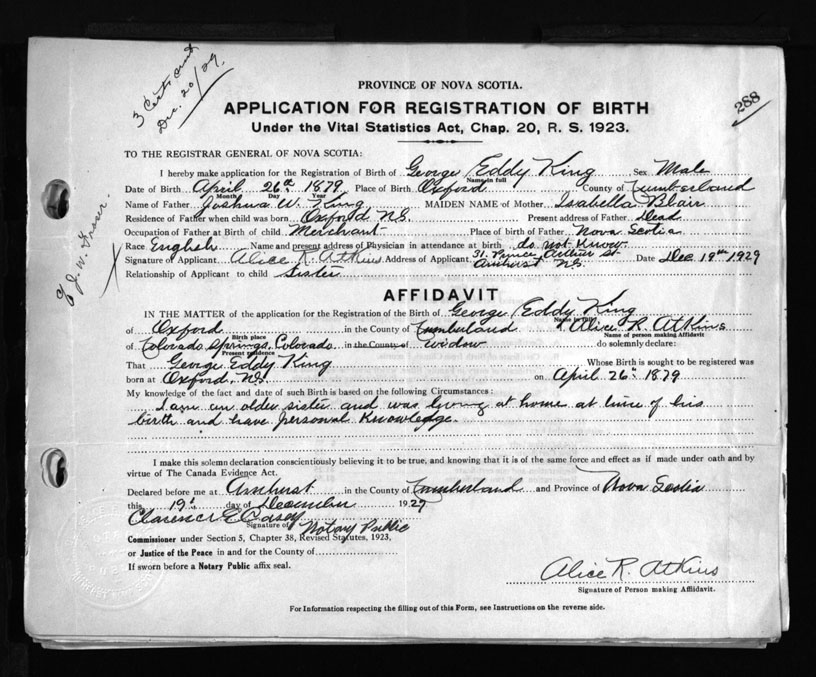 3 Certs
Dec. 20/29.
288
PROVINCE OF NOVA SCOTIA.
APPLICATION FOR REGISTRATION OF BIRTH
Under the Vital Statistics Act, Chap. 20, R. S. 1923.
TO THE REGISTRAR GENERAL OF NOVA SCOTIA:
I hereby make application for the Registration of Birth of George Eddy King Sex Male
Name in full
Date of Birth April 26th 1879 Place of Birth Oxford County of Cumberland
Month Day Year
Name of Father Joshua W. King MAIDEN NAME of Mother Isabella Blair
Residence of Father when child was born Oxford N.S. Present address of Father Dead
Occupation of Father at Birth of child Merchant Place of birth of Father Nova Scotia
Race English Name and present address of Physician in attendance at birth do not know
Signature of Applicant Alice R. Atkins Address of Applicant 31 Prince Arthur St. Amherst N.S. Date Dec 19th 1929
Relationship of Applicant to child Sister
J. W. Fraser.
AFFIDAVIT
IN THE MATTER of the application for the Registration of the Birth of George Eddy King
Name in full
of Oxford in the County of Cumberland I, Alice R. Atkins
Birth place Name of person making Affidavit
of Colorado Springs, Colorado in the County of widow do solemnly declare:
Present residence
That George Eddy King Whose Birth is sought to be registered was
born at Oxford, N.S. on April 26th 1879
My knowledge of the fact and date of such Birth is based on the following Circumstances:
I am an older sister and was living at home at time of his
birth and have personal knowledge.
I make this solemn declaration conscientiously believing it to be true, and knowing that it is of the same force and effect as if made under oath and by
virtue of The Canada Evidence Act.
Declared before me at Amherst in the County of Cumberland and Province of Nova Scotia
this 19th day of December 1929
Clarence E Casey
Signature of Notary Public
Commissioner under Section 5, Chapter 38, Revised Statutes, 1923,
or Justice of the Peace in and for the County of
If sworn before a Notary Public affix seal.
Alice R. Atkins
Signature of Person making Affidavit.
For Information respecting the filling out of this Form, see Instructions on the reverse side.